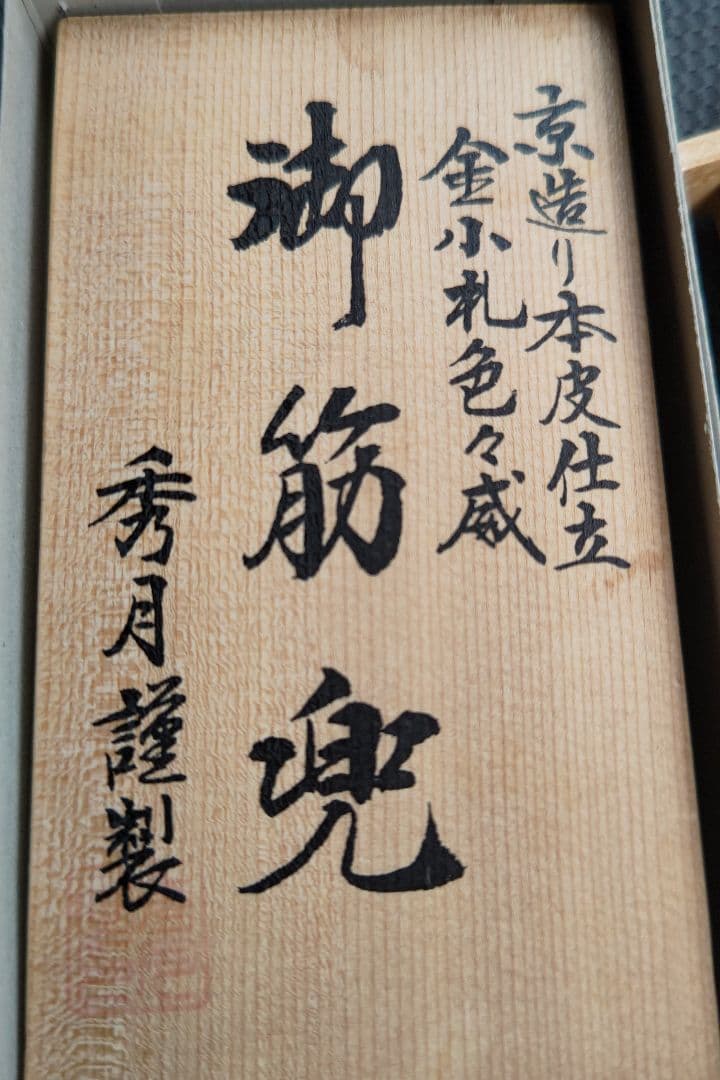 京造り本皮仕立
金小札色々威
御筋兜
秀月謹製